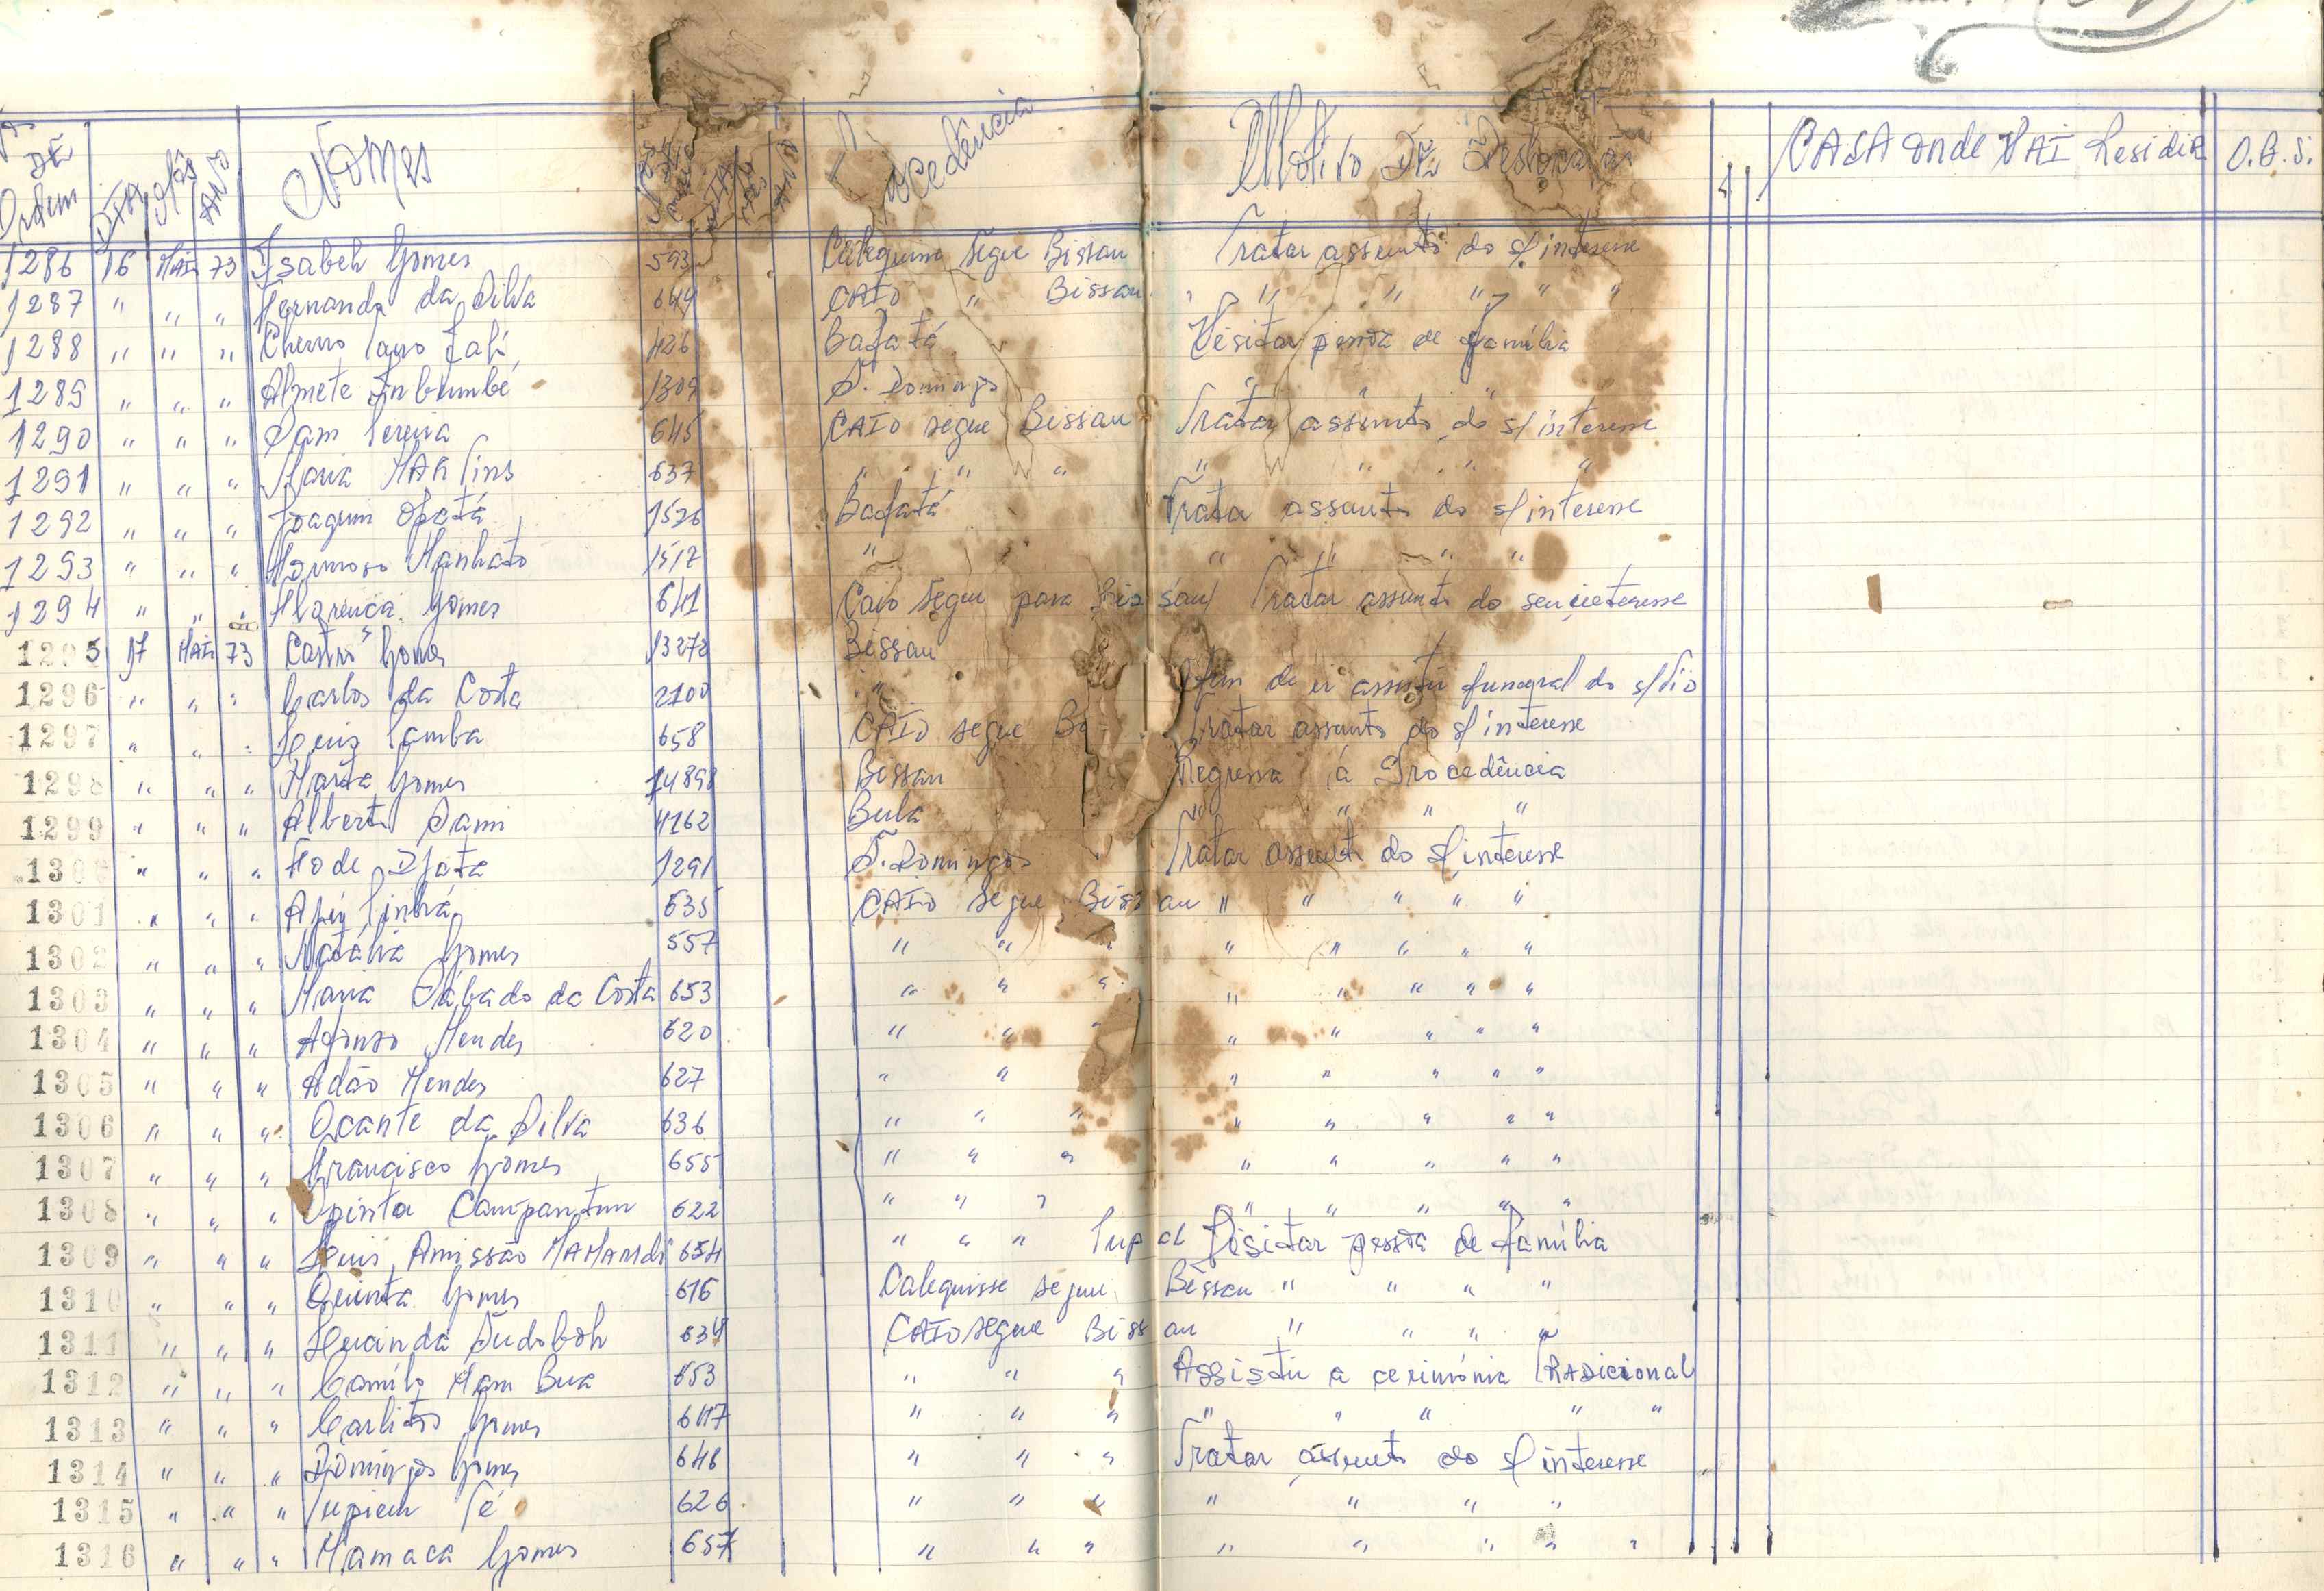 DE Ordem DIA Mês ANO Nomes ocedência Motivo De Desloca CASA onde VAI Residir O.B.S.
1286 16 MAI 73 Isabeh Gomes 593 Calequisse segue Bissau Tratar assunto do s/interesse
1287 " " " Fernanda da Silva 644 CAIO " Bissau " " " " "
1288 " " " Cherno 426 Bafatá Visitar pessoa de família
1289 " " " Inbumbé 1309 S. Domingos " " "
1290 " " " Sam Pereira 645 CAIO segue Bissau Tratar assunto do s/interesse
1291 " " " Maria MARTins 637 " " " " " " "
1292 " " " Joaquim Opatá 1576 Bafatá Tratar assunto do s/interesse
1293 " " " Manhato 1517 " " " " "
1294 " " " Florença Gomes 641 Caio segue para Bissau Tratar assunto do seu interesse
1295 17 MAI 73 Castro Gomes 13272 Bissau
1296 " " " Carlos da Costa 2100 " Afim de ir assistir funeral do s/tio
1297 " " " Luis Samba 658 CAIO segue Bi Tratar assunto do s/interesse
1298 " " " Marta Gomes 14898 Bissau Regressa á Procedência
1299 " " " Alberto Sami 4162 Bula " " " "
130 " " " Fode Djata 1291 S. Domingos Tratar assunto do s/interesse
1301 " " " 635 CAIO segue Bissau " " " " "
1302 " " " Natália Gomes 557 " " " " " " " "
1303 " " " Maria Sábado da Costa 653 " " " " " " " "
1304 " " " Afonso Mendes 620 " " " " " " " "
1305 " " " Adão Mendes 627 " " " " " " "
1306 " " " Ocante da Silva 636 " " " " " " " "
1307 " " " Francisco Gomes 655 " " " " " " " "
1308 " " " Spinta Campantum 622 " " " " " " " "
1309 " " " Luis Amissão MAMAndi 654 " " " Visitar pessoa de família
1310 " " " Quinta Gomes 616 Calequisse segue Bissau " " " "
1311 " " " 634 CAIO segue Bissau " " " "
1312 " " " Camilo Mam Bua 653 " " " Assistir a cerimónia TRADicional
1313 " " " Carlitos Gomes 647 " " " " " " " "
1314 " " " Domingos Gomes 648 " " " Tratar assunto do s/interesse
1315 " " " Té 626 " " " " " " "
1316 " " " Mamaca Gomes 657 " " " " " " " "